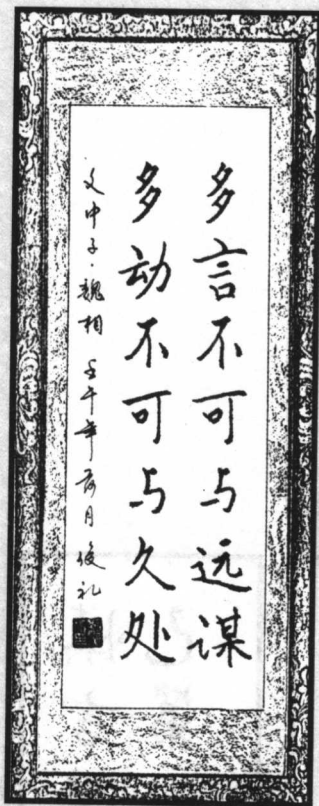 多言不可与远谋
多动不可与久处
文中子·魏相 壬午年荷月 俊礼